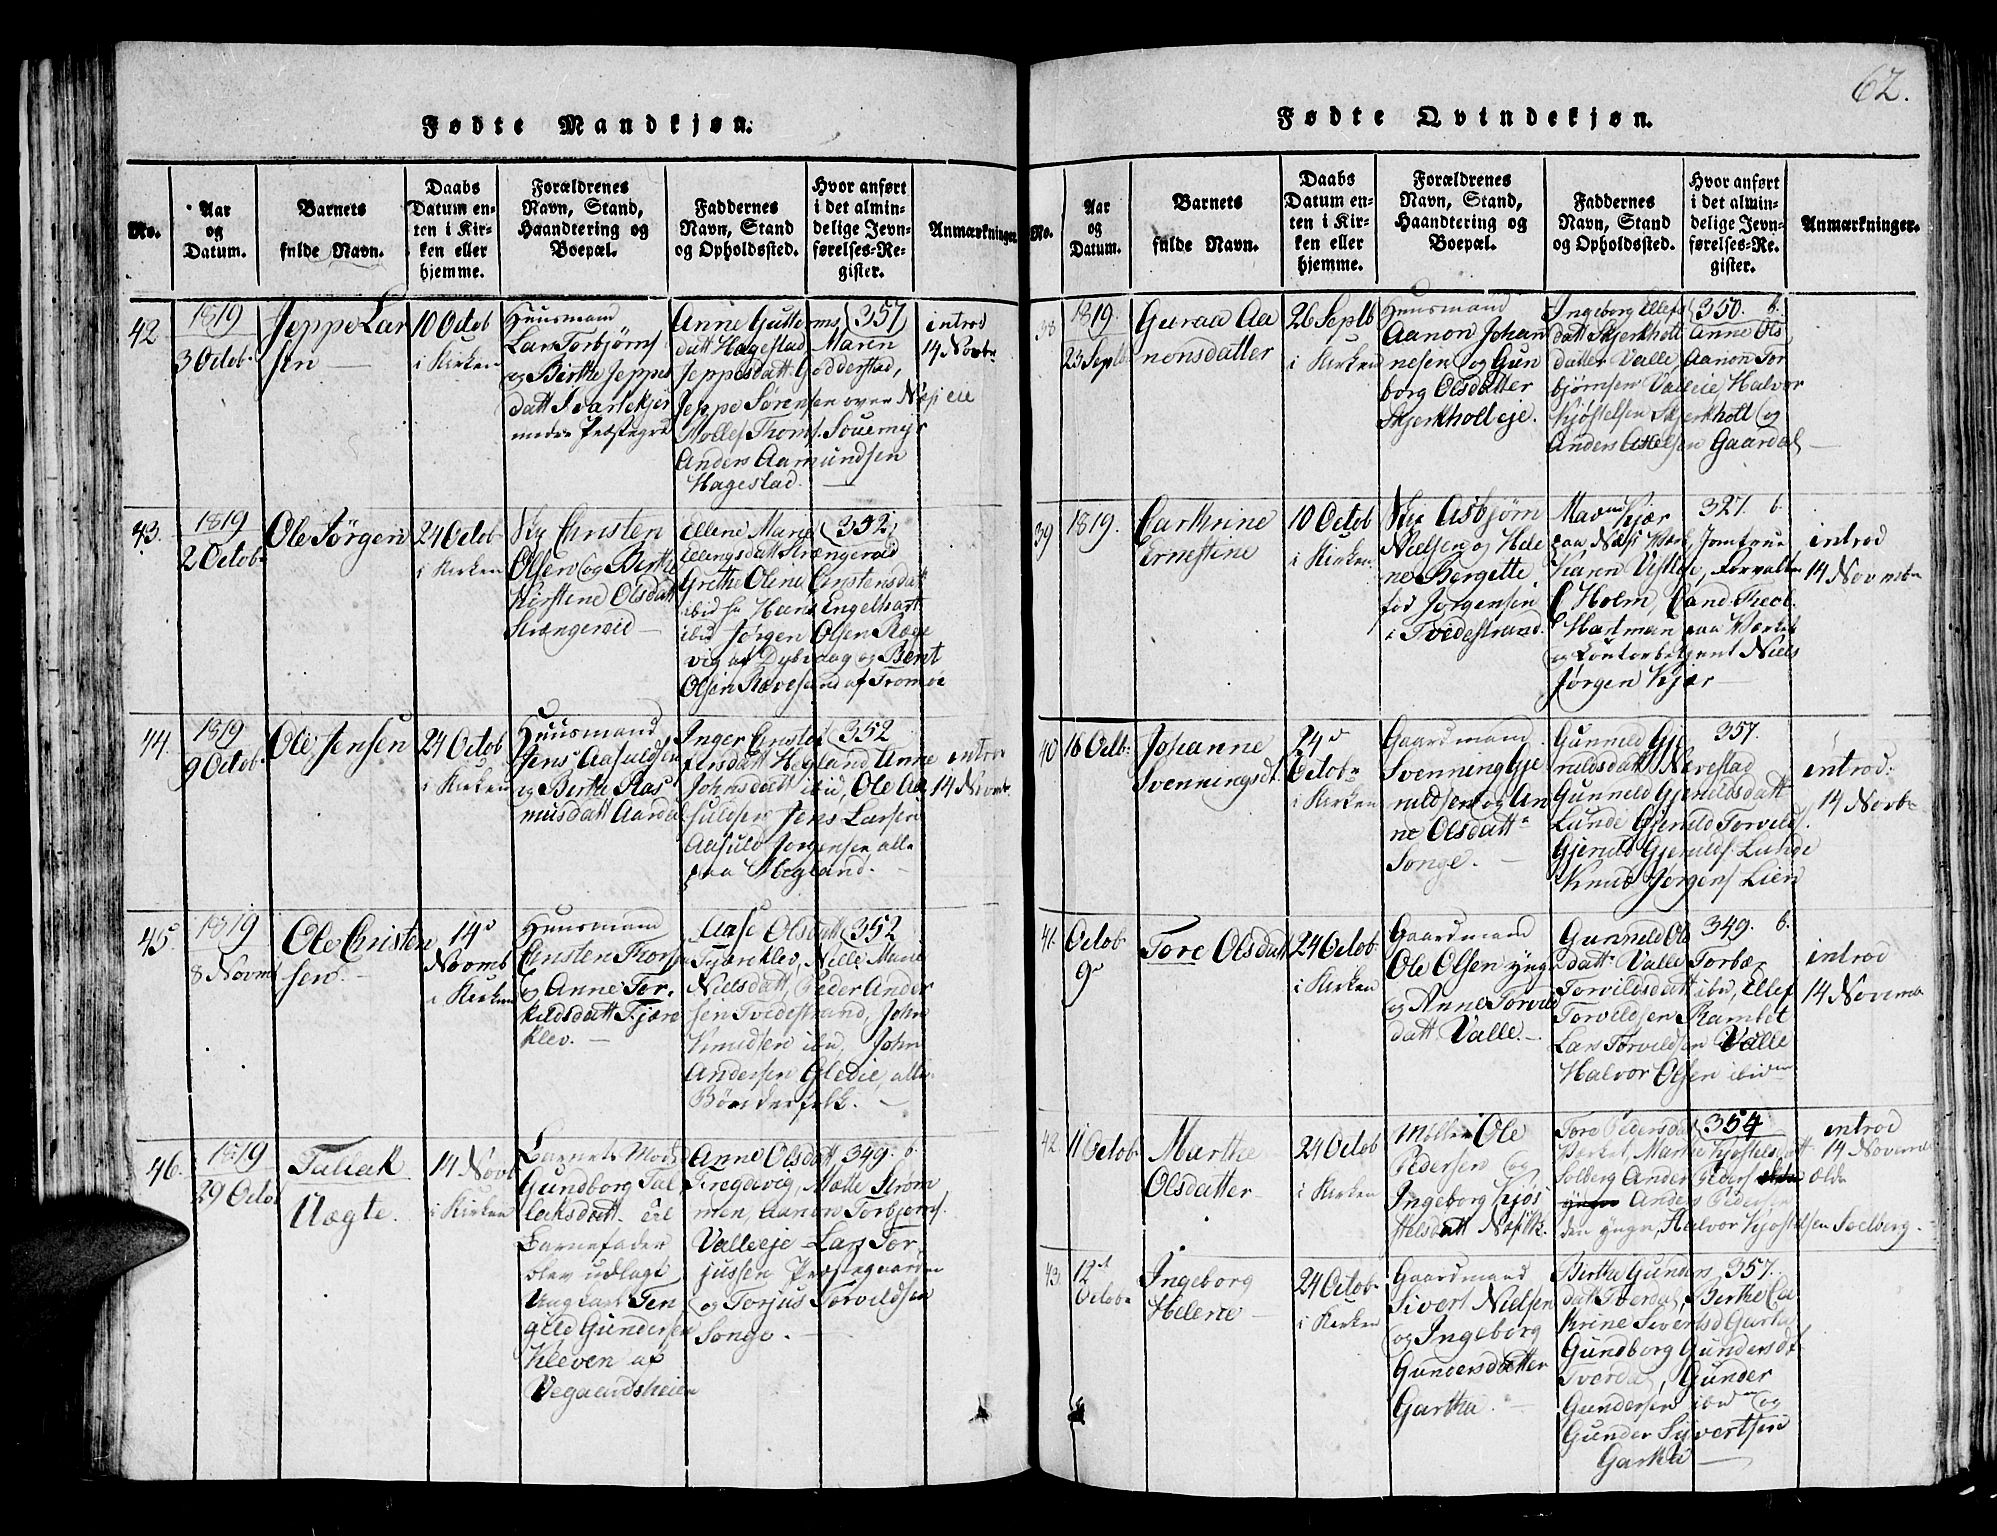 62.
Fødte Mandkjøn.
No.
Aar
og
Datum.
Barnets
fulde Navn.
Daabs
Datum en-
ten i Kir-
ken eller
hjemme.
Forældrenes
Navn, Stand,
Haandtering og
Boepæl.
Faddernes
Navn, Stand
og Opholdssted.
Hvor anført
i det almin-
delige Jevn-
førelses-Re-
gister.
Anmærkninger.
42
1819
3 Octob
Jeppe Lar
sen
10 Octob
i Kirken
Huusmand
Lars Torbjørns
og Birthe Jeppes
datt
under Præstegrd
Anne Guttorms
datt Hagestad Maren
Jeppesdatt Godderstad,
Jeppe Sørensen over Næs eie
Anders Aamundsen
Hagestad.
357
introd
14 Novbr
43.
1819
2 Octob
Ole Jørgen
24 Octob
i Kirken
Christen
Olsen og Birthe
Kirstine Olsdatt
Strængereid
Ellene Marie
Ellingsdatt Strængereid
Grethe Oline Christensdatt
ibid Hans Engelhart
ibid Jørgen Olsen Ræge
vig af Dybvaag og Bent
Olsen Rævesand af Tromøe
352
44.
1819
9 Octob
Ole Jensen
24 Octob
i Kirken
Huusmand
Jens Aasuldsen
og Birthe Ras
musdatt Aardal
Inger Christens
datt Hegland Anne
Johnsdatt ibid, Ole Aa
suldsen Jens Larsen
Aasuld Jørgensen alle
paa Hegland.
352
introd
14 Novmb
45
1819
8 Novmb
Ole Christen
sen
14
Novmb
i Kirken
Huusmand
Christen Thors
og Anne Tor
kildsdatt Fjære
klev.
Aase Olsdatt
Fjæreklev, Nille Marie
Nielsdatt, Peder Ander
sen Tvedestrand, John
Knudsen ibid, John
Andersen Gledie, alle
Bønderfolk.
352
46.
1819
29 Octob
Tallak
Uægte.
14 Novb
i Kirken
Barnets Mod
Gundborg Tal
laksdatt. til
Barnefader
blev udlagt
Ungkarl Ten
gild Gundersen
Kleven af
Vegaardsheien
Anne Olsdatt
Krogdevig, Mette Strøm
men, Aanon Torbjørns
Valleeje Lars Tor
jussen Præstegaarden
og Torjus Torvildsen
Songe.
349. b.
Fødte Qvindekjøn.
No.
Aar
og
Datum.
Barnets
fulde Navn.
Daabs
Datum en-
ten i Kir-
ken eller
hjemme.
Forældrenes
Navn, Stand,
Haandtering og
Boepæl.
Faddernes
Navn, Stand
og Opholdssted.
Hvor anført
i det almin-
delige Jevn-
førelses-Re-
gister.
Anmærkninger.
38
1819.
23 Septb
Guraa Aa
nonsdatter
26 Septb
i Kirken
Huusmand
Aanon Johan
nesen og Gun
borg Olsdatter
Skjerkholt eje.
Ingeborg Ellefs
datt Skjerkholt Anne Ols
datter Valle, Aanon Tor
bjørnsen Valleie Halvor
Kjøstelsen Skjerkholt og
Anders Axelsen Gaardal
350. b.
39
1819.
Catrine
Ernestine
10 Octob
i Kirken
Asbjørn
Nielsen og Hele
ne Bergette
fød Jørgensen
i Tvedestrand.
Mad Kjær
paa Næss Værk, Jomfrue
Karen, Forvalter
Holm, Cand Theol
Hartman paa Værket
og Contorbetjent Niels
Jørgen Kjær
327. b.
introd
14 Novmbr
40
16 Octb.
Johanne
Svenningsdt.
24
Octobr
i Kirken
Gaardmand
Svenning Gje
ruldsen og An
ne Olsdatt
Songe.
Gunneld Gje
ruldsdatt Nævestad
Gunneld Gjeruldsdatt
Lunde Gjeruld Torvilds
Gjeruld Gjerulds Lunde
Knud Jørgens Lien
357.
introd:
14 Novbr
41.
Octob
9
Tore Olsdatt
24 Octob
i Kirken
Gaardmand
Ole Olsen yng
og Anne Torvild
datt Valle.
Gunneld Ols
datt Valle Torbær
Torvildsdatt ibid, Ellef
Torvildsen Ramlet
Lars Torvildsen Valle
Halvor Olsen ibid
349. b.
introd
14 Novembr
42.
11 Octob
Marthe
Olsdatter
24 Octob
i Kirken
Møller Ole
Pedersen og
Ingeborg Kjøs
telsdatt
Tore Pedersdatt
Værket, Marthe Kjøstelsdatt
Solberg Anders Peders ælde
yngre Anders Pedersen
den yngre, Halvor Kjøstelsen Soelberg.
354
introd
14 Novemb
43.
12
Octob
Ingeborg
Helene
24 Octob
i Kirken
Gaardmand
Sivert Nielsen
og Ingeborg
Gundersdatter
Gartha
Birthe Gunders
datt Tverdal, Birthe Ca
trine Sivertsd Garta
Gundborg Gundersdt
Tverdal, Gunder
Gundersen ibd og
Gunder Syvertsen
Gartha
357.